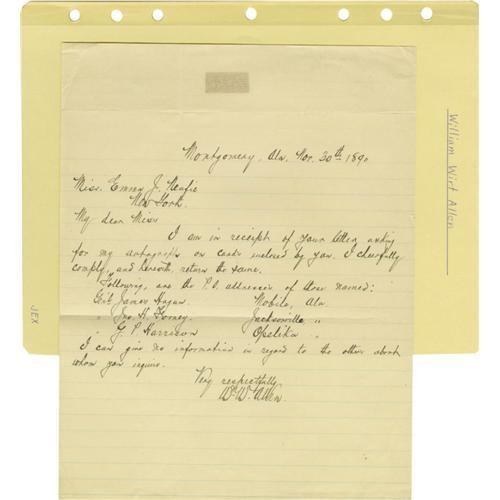 Montgomery, Ala. Nov. 30th 1890
Miss. Emma J.
New York.
My dear Miss
I am in receipt of your letter asking
for my autograph on cards enclosed by you. I cheerfully
comply, and herewith return the same.
Following, are the P.O. addresses of those named:
Gen'l James Hagan. Mobile, Ala
" Jno H. Forney. Jacksonville, "
" G. P. Harrison Opelika "
I can give no information in regard to the others about
whom you inquire.
Very respectfully
Wm. W. Allen.
William Wirt Allen
JEX